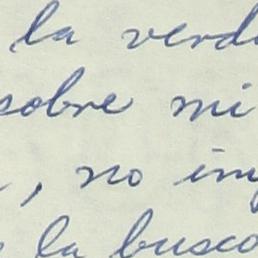 la verd
sobre mi
, no im
la busco